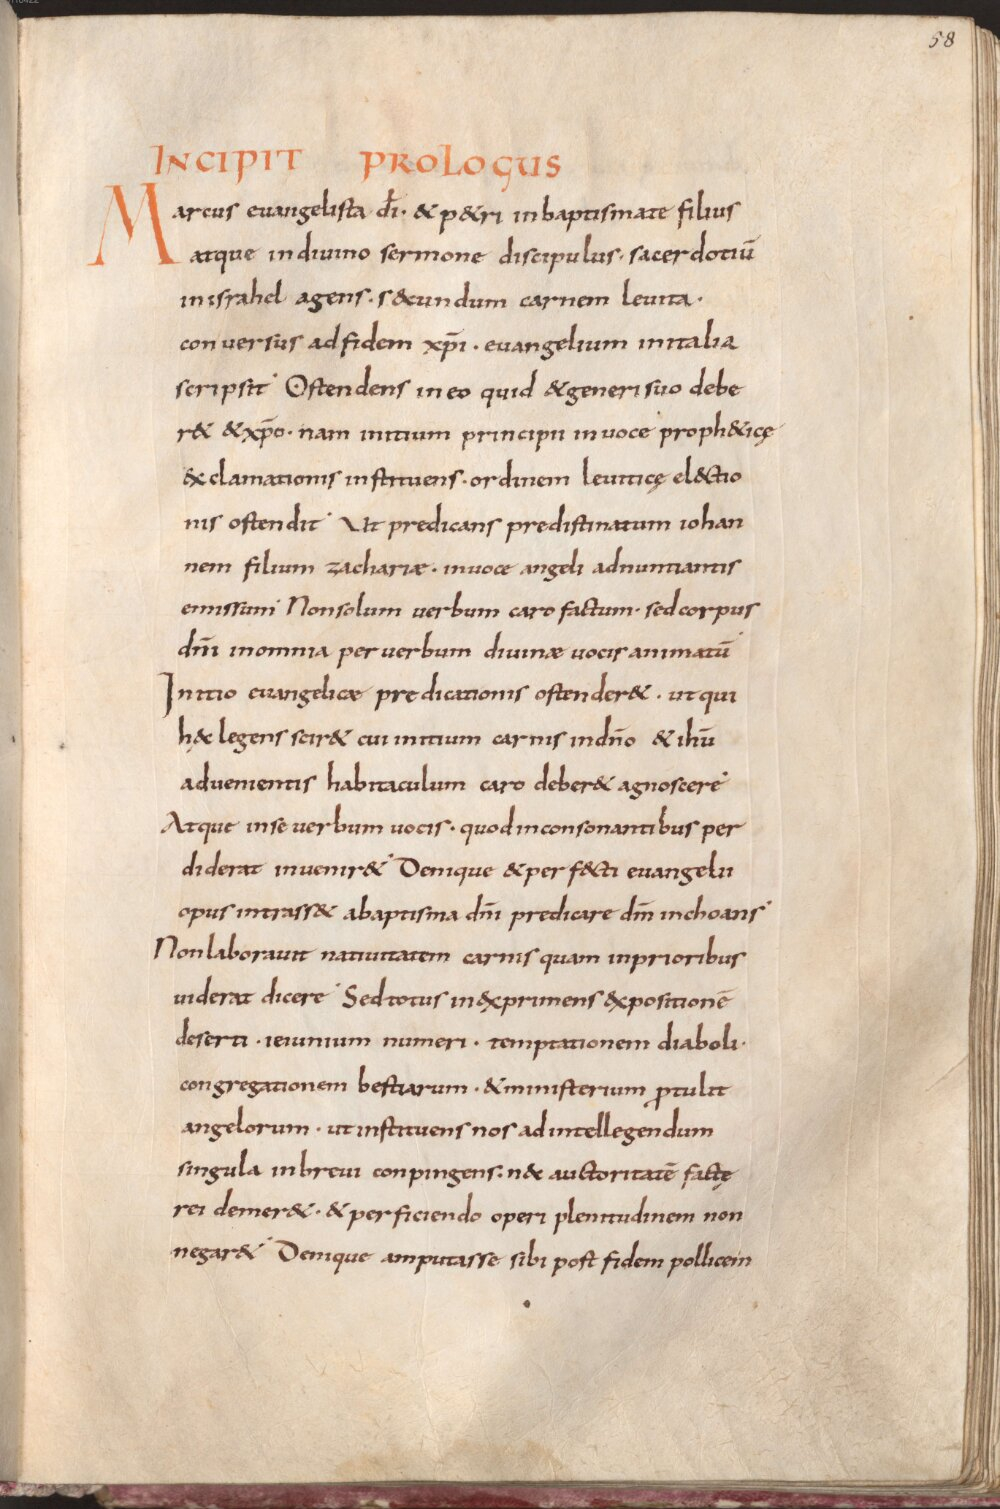 58
INCIPIT PROLOGUS
Marcus evangelista dī· & p&ri inbaptismate filius
atque indivino sermone discipulus· sacerdotiū
inisrahel agens· s&cundum carnem levita·
conversus adfidem xp̄i· evangelium initalia
scripsit Ostendens ineo quid &generi suo debe
r& &xp̄o· nam initium principii invoce proph&icę
&clamationis instituens· ordinem leviticę el&ctio
nis ostendit Ut predicans predistinatum iohan
nem filium zachariæ· invoce angeli adnuntiantis
emissum Nonsolum verbum caro factum· sed corpus
dn̄i inomnia perverbum divinæ vocis animatū
Initio evangelicæ predicationis ostender&· utqui
hæc legens scir& cui initium carnis indn̄o &ihū
advenientis habitaculum caro deber& agnoscere
Atque inse verbum vocis· quodinconsonantibus per
diderat invenir& Denique &perf&cti evangelii
opus intrass& abaptisma dn̄i predicare dm̄ inchoans
Nonlaboravit nativitatem carnis quam inprioribus
viderat dicere Sedtotus in&xprimens &xpositionē
deserti· ieiunium numeri· temptationem diaboli·
congregationem bestiarum· &ministerium p̲tulit
angelorum· ut instituens nos ad intellegendum
singula inbrevi conpingens· n&c auctoritatē factę
rei demer&· &perficiendo operi plenitudinem non
negar& Denique amputasse sibi post fidem pollicem